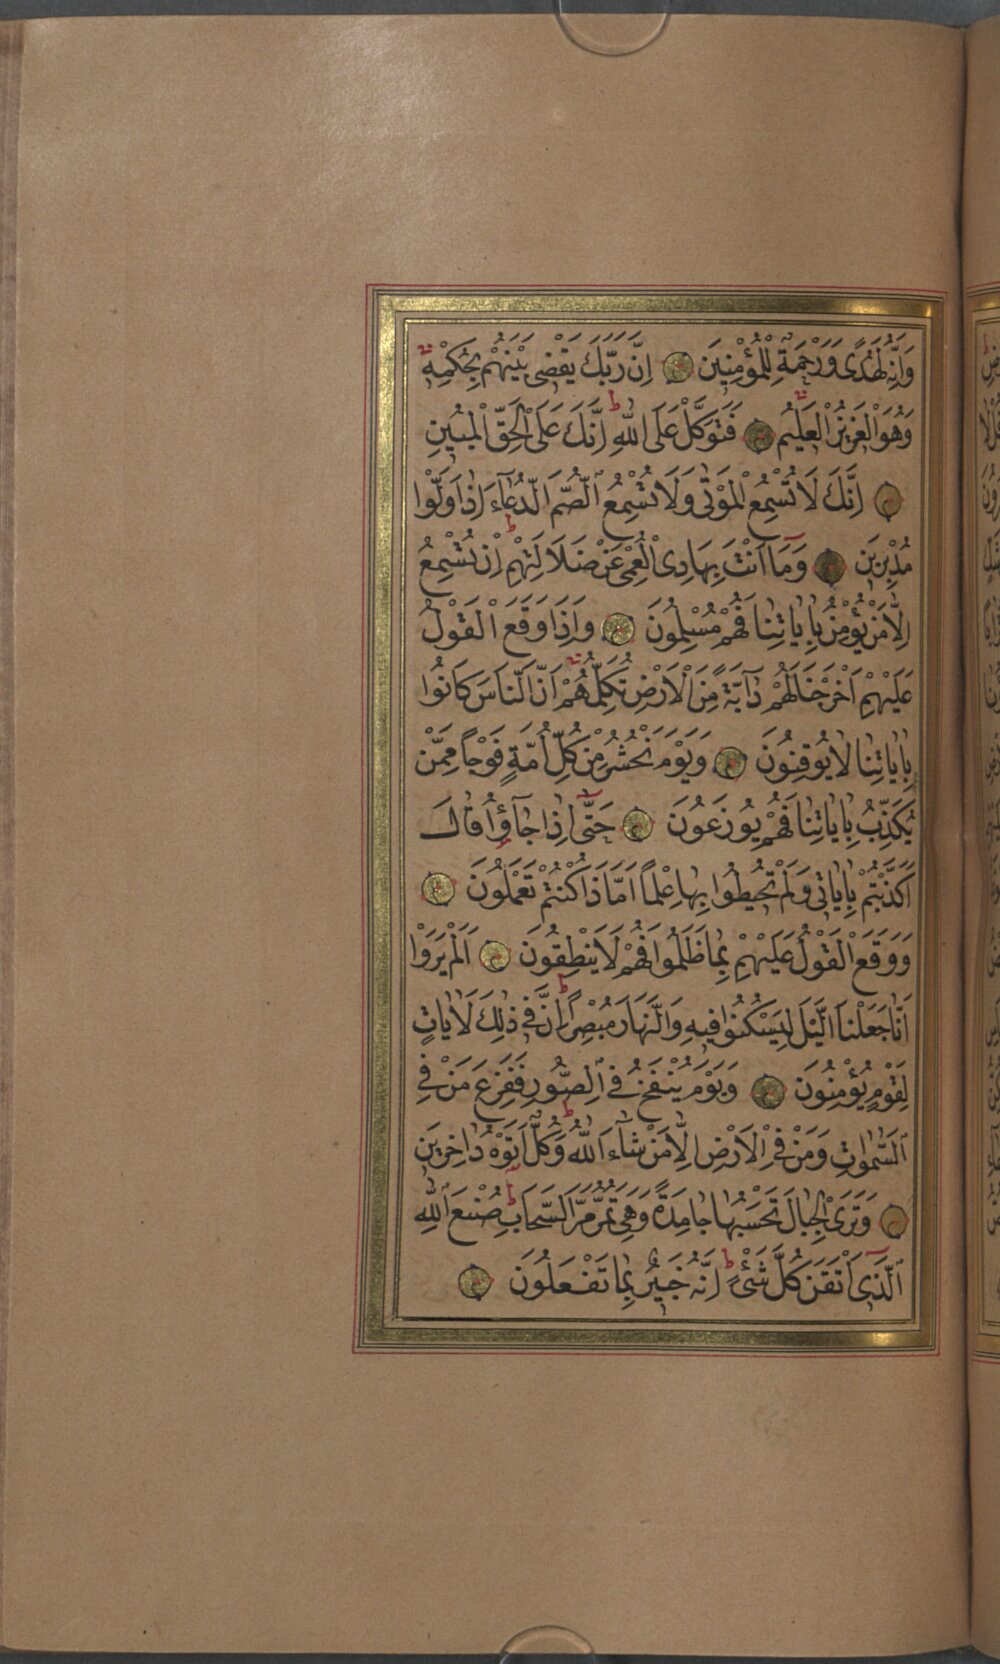 وَاِنَّهُ لَهُدًى وَرَحْمَةٌ لِلْمُؤْمِنِينَ اِنَّ رَبَّكَ يَقْضِى بَيْنَهُمْ بِحُكْمِهِ
وَهُوَ الْعَزِيزُ الْعَلِيمُ فَتَوَكَّلْ عَلَى اللّٰهِ اِنَّكَ عَلَى الْحَقِّ الْمُبِينِ
اِنَّكَ لَا تُسْمِعُ الْمَوْتٰى وَلَا تُسْمِعُ الصُّمَّ الدُّعَآءَ اِذَا وَلَّوْا
مُدْبِرِينَ وَمَآ اَنْتَ بِهَادِى الْعُمْىِ عَنْ ضَلَالَتِهِمْ اِنْ تُسْمِعُ
اِلَّا مَنْ يُؤْمِنُ بِاٰيَاتِنَا فَهُمْ مُسْلِمُونَ وَاِذَا وَقَعَ الْقَوْلُ
عَلَيْهِمْ اَخْرَجْنَا لَهُمْ دَآبَّةً مِنَ الْاَرْضِ تُكَلِّمُهُمْ اَنَّ النَّاسَ كَانُوا
بِاٰيَاتِنَا لَا يُوقِنُونَ وَيَوْمَ نَحْشُرُ مِنْ كُلِّ اُمَّةٍ فَوْجًا مِمَّنْ
يُكَذِّبُ بِاٰيَاتِنَا فَهُمْ يُوزَعُونَ حَتّٰىٓ اِذَا جَآؤُا قَالَ
اَكَذَّبْتُمْ بِاٰيَاتِى وَلَمْ تُحِيطُوا بِهَا عِلْمًا اَمَّاذَا كُنْتُمْ تَعْمَلُونَ
وَوَقَعَ الْقَوْلُ عَلَيْهِمْ بِمَا ظَلَمُوا فَهُمْ لَا يَنْطِقُونَ اَلَمْ يَرَوْا
اَنَّا جَعَلْنَا الَّيْلَ لِيَسْكُنُوا فِيهِ وَالنَّهَارَ مُبْصِرًا اِنَّ فِى ذٰلِكَ لَاٰيَاتٍ
لِقَوْمٍ يُؤْمِنُونَ وَيَوْمَ يُنْفَخُ فِى الصُّورِ فَفَزِعَ مَنْ فِى
السَّمٰوَاتِ وَمَنْ فِى الْاَرْضِ اِلَّا مَنْ شَآءَ اللّٰهُ وَكُلٌّ اَتَوْهُ دَاخِرِينَ
وَتَرَى الْجِبَالَ تَحْسَبُهَا جَامِدَةً وَهِىَ تَمُرُّ مَرَّ السَّحَابِ صُنْعَ اللّٰهِ
الَّذِىٓ اَتْقَنَ كُلَّ شَىْءٍ اِنَّهُ خَبِيرٌ بِمَا تَفْعَلُونَ